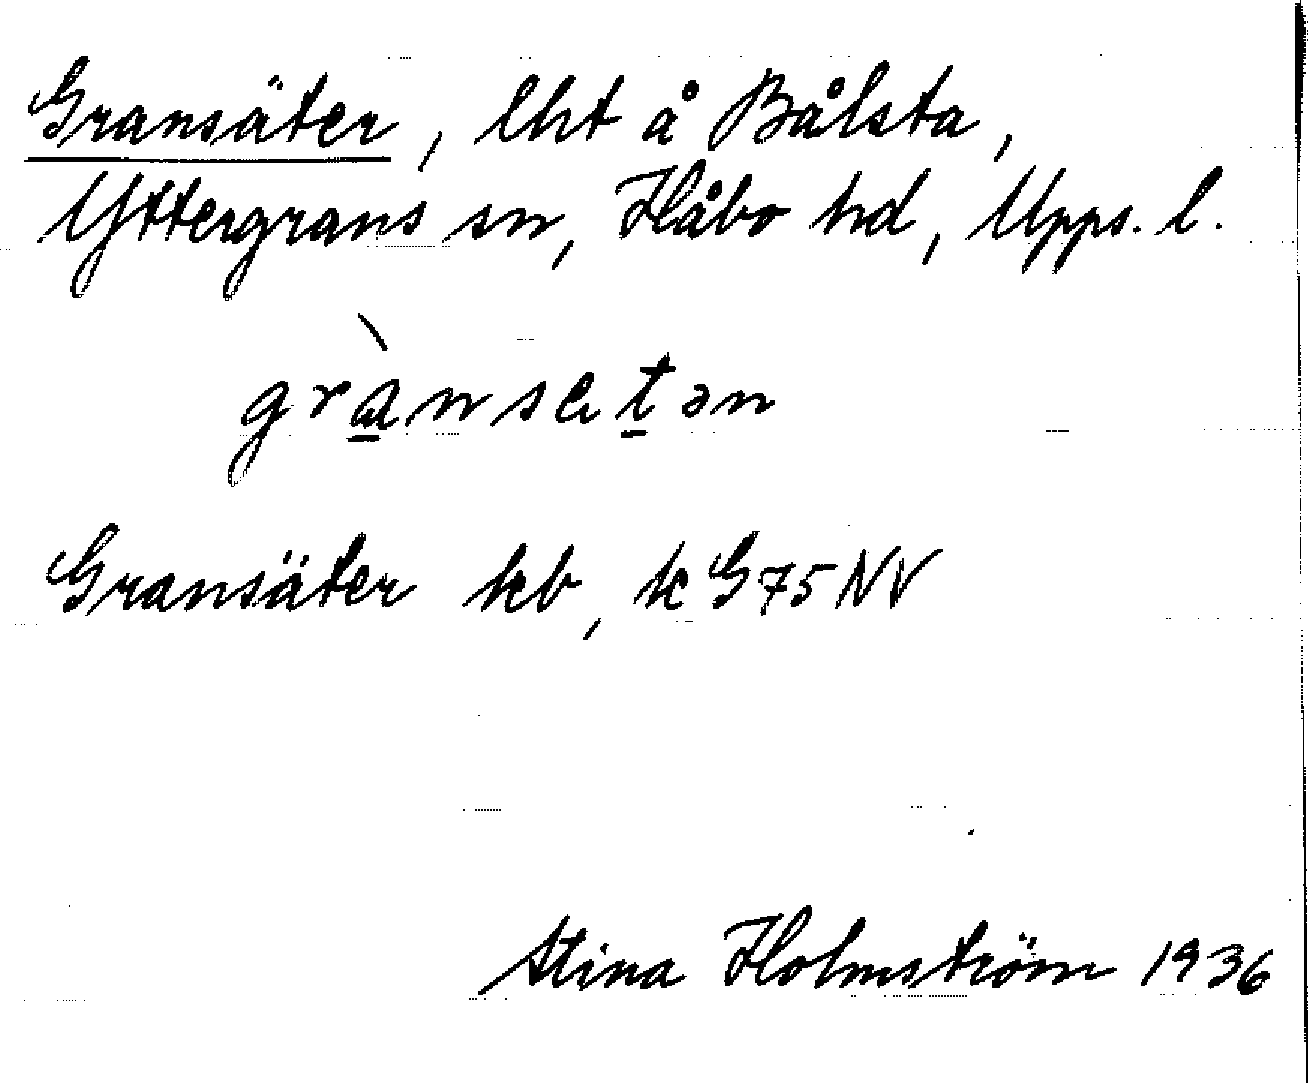 Gransäter, lht å Bålsta,
Yttergrans sn, Håbo hd, Upps. l.
grànsetən
Gransäter kb, k G75NV
Stina Holmström 1936